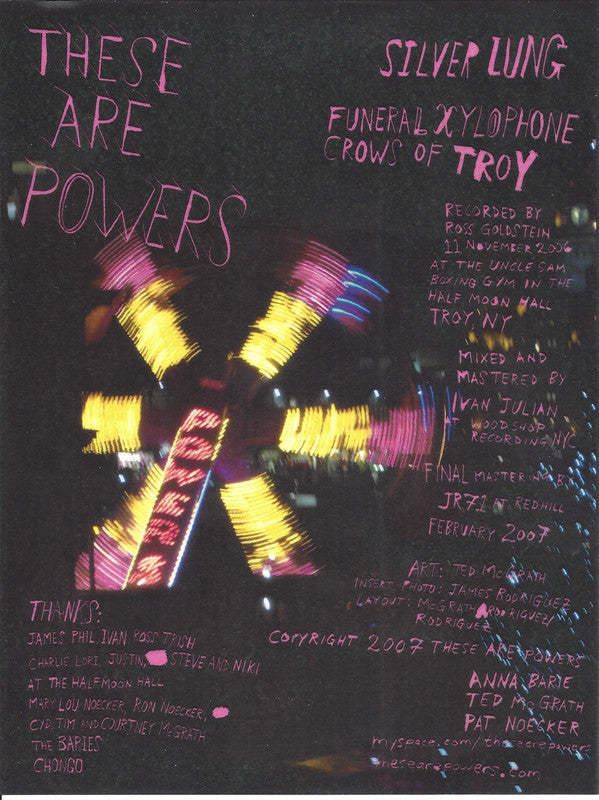 THESE
ARE
POWERS
SILVER LUNG
FUNERAL XYLOPHONE
CROWS OF TROY
RECORDED BY
ROSS GOLDSTEIN
11 NOVEMBER 2006
AT THE UNCLE SAM
BOXING GYM IN THE
HALF MOON HALL
TROY, NY
MIXED AND
MASTERED BY
IVAN JULIAN
AT WOODSHOP
RECORDING, NYC
FINAL MASTERING BY
JR71 AT REDHILL
FEBRUARY 2007
ART: TED McGRATH
INSERT PHOTO: JAMES RODRIGUEZ
LAYOUT: McGRATH RODRIGUEZ/
RODRIGUEZ
COPYRIGHT 2007 THESE ARE POWERS
ANNA BARIE
TED McGRATH
PAT NOECKER
myspace.com/thesearepowers
thesearepowers.com
THANKS:
JAMES, PHIL, IVAN, ROSS, TRISH
CHARLIE, LORI, JUSTIN, STEVE AND NIKI
AT THE HALFMOON HALL
MARY LOU NOECKER, RON NOECKER,
CYD, TIM AND COURTNEY McGRATH
THE BARIES
CHONGO